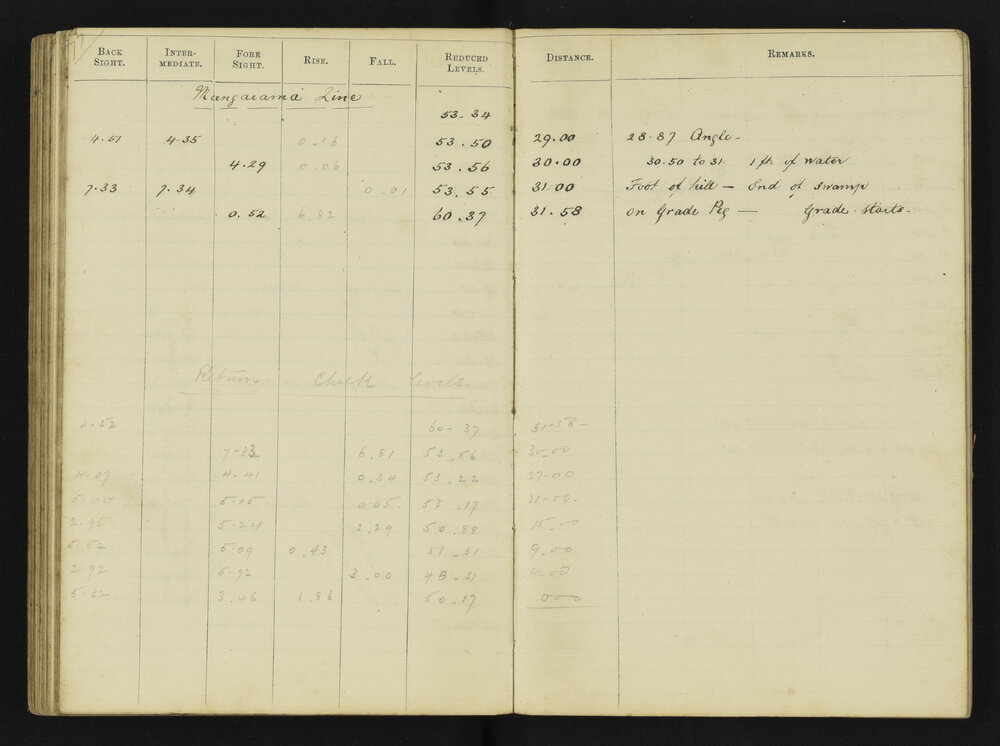 BACK SIGHT. INTER- MEDIATE. FORE SIGHT. RISE. FALL. REDUCED LEVELS. DISTANCE. REMARKS.
Mangarama Line
53-34
4.51 4-35 0-16 53.50 29.00 28-87 Angle-
4.29 0.06 53.56 30.00 30.50 to 31. 1 ft. of water
7.33 7.34 0-01 53.55 31.00 Foot of hill — End of swamp
0.52 6.82 60.37 31.58 on Grade Peg — Grade starts-
Return Check Levels.
0.52 60-37 31-58-
7-33 6.81 53.56 30-00
4.07 4-41 0.34 53.22 27-00
5.00 5.05 0.05. 53.17 21-00.
2.95 5.24 2.29 50.88 15-00
5.52 5.09 0.43 51-31 9-00
2.92 5.92 3-00 48-31 4-00
5.32. 3.46 1.86 50.17 000